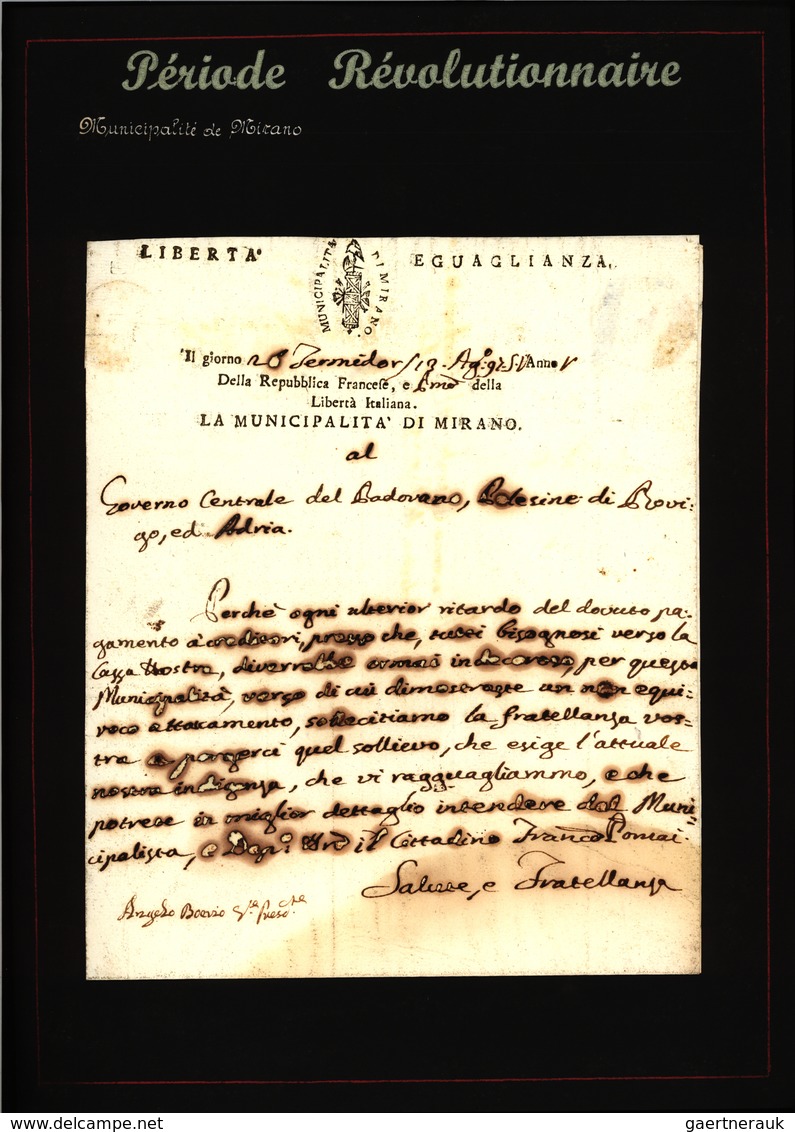 Période Révolutionnaire
Municipalité de Mirano
LIBERTA'
EGUAGLIANZA.
MUNICIPALITA DI MIRANO.
Il giorno 26 Termidor Anno V
Della Repubblica Francese, e Pmo della
Libertà Italiana.
LA MUNICIPALITA' DI MIRANO.
al
Governo Centrale del Padovano, Polesine di Rovi-
go, ed Adria.
Perchè ogni ulterior ritardo del dovuto pa-
gamento a' creditori, presso che, tutti bisognosi verso la
Cassa Nostra, diverrebbe ormai indecoroso, per questa
Municipalità, verso di cui dimostraste un non equi-
voco attacamento, sollecitiamo la fratellanza vos-
tra a porgerci quel sollievo, che esige l'attuale
nostra indigenza, che vi ragguagliammo, e che
potrete in miglior dettaglio intendere dal Muni-
cipalista, e il Cittadino Franco
Salute, e Fratellanza
Angelo
delcampe.net
gaertnerauk